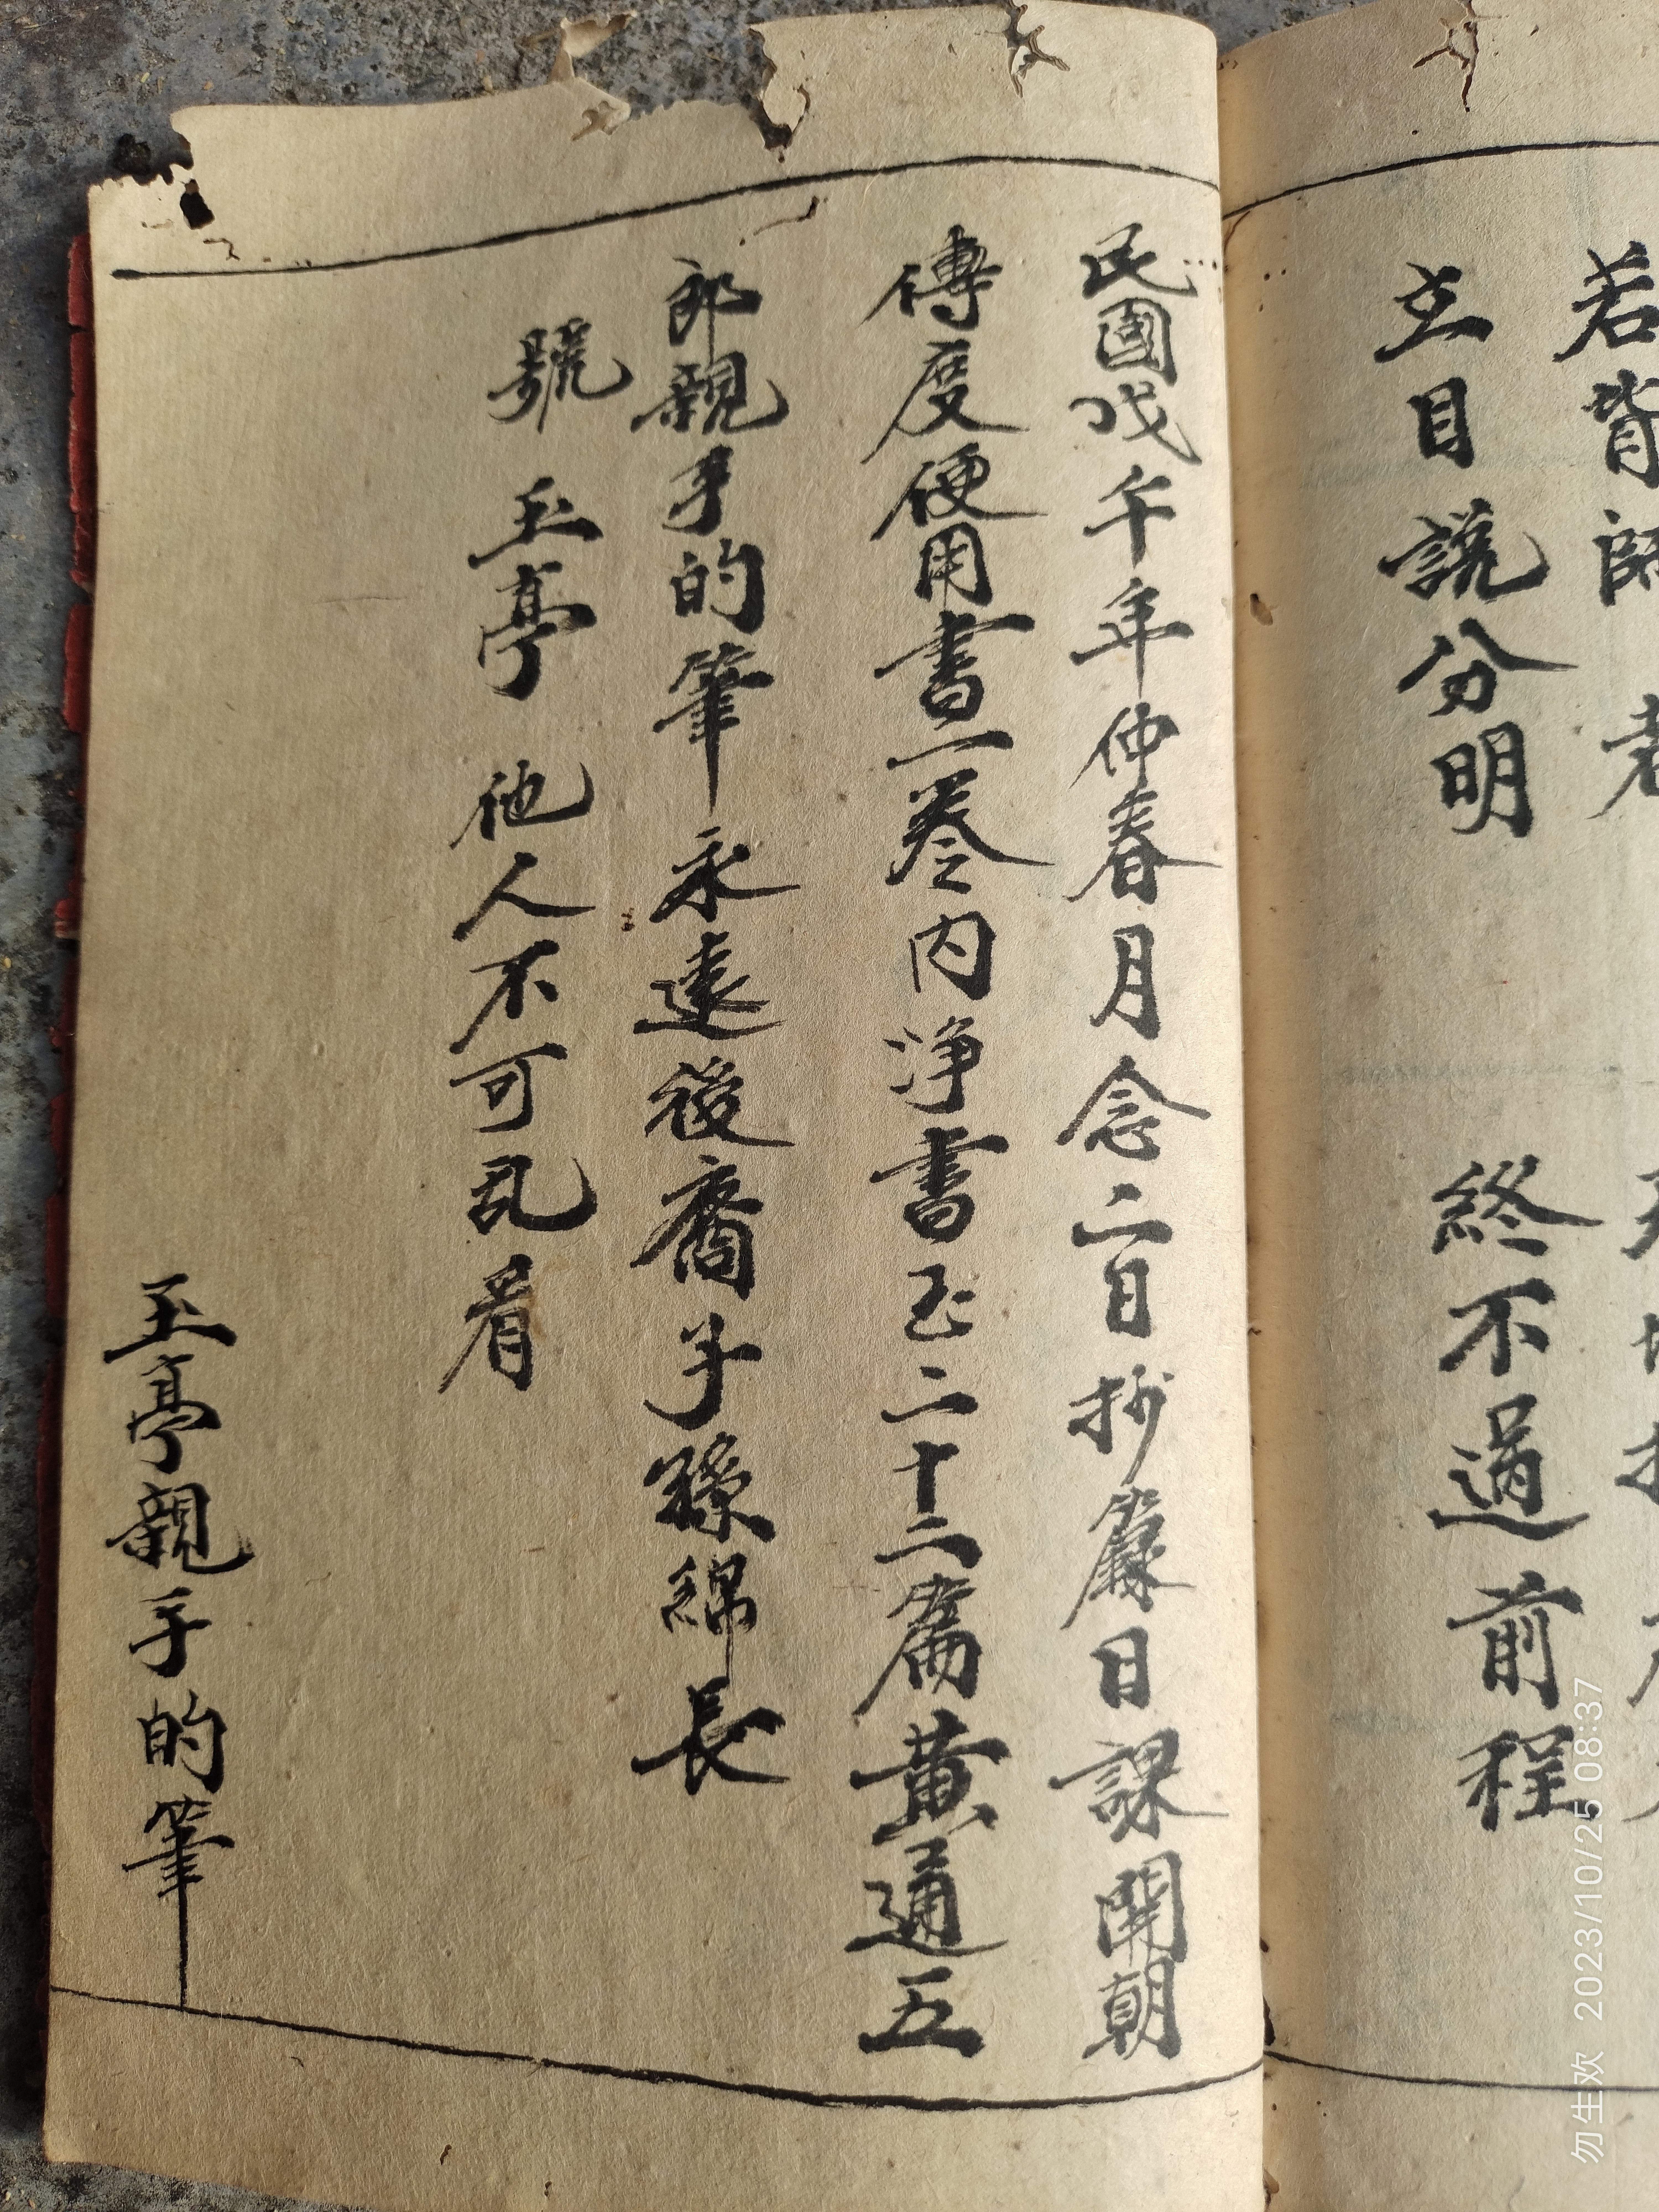 若皆師 若
立目說分明 終不過前程
民國戊午年仲春月念二日抄籙日課開朝
傳度便用書一卷內净書玉二十二篇黃通五
郎親手的筆永遠後裔子孫綿長
號 玉亭 他人不可乱看
玉亭親手的筆
勿生欢 2023/10/25 08:37